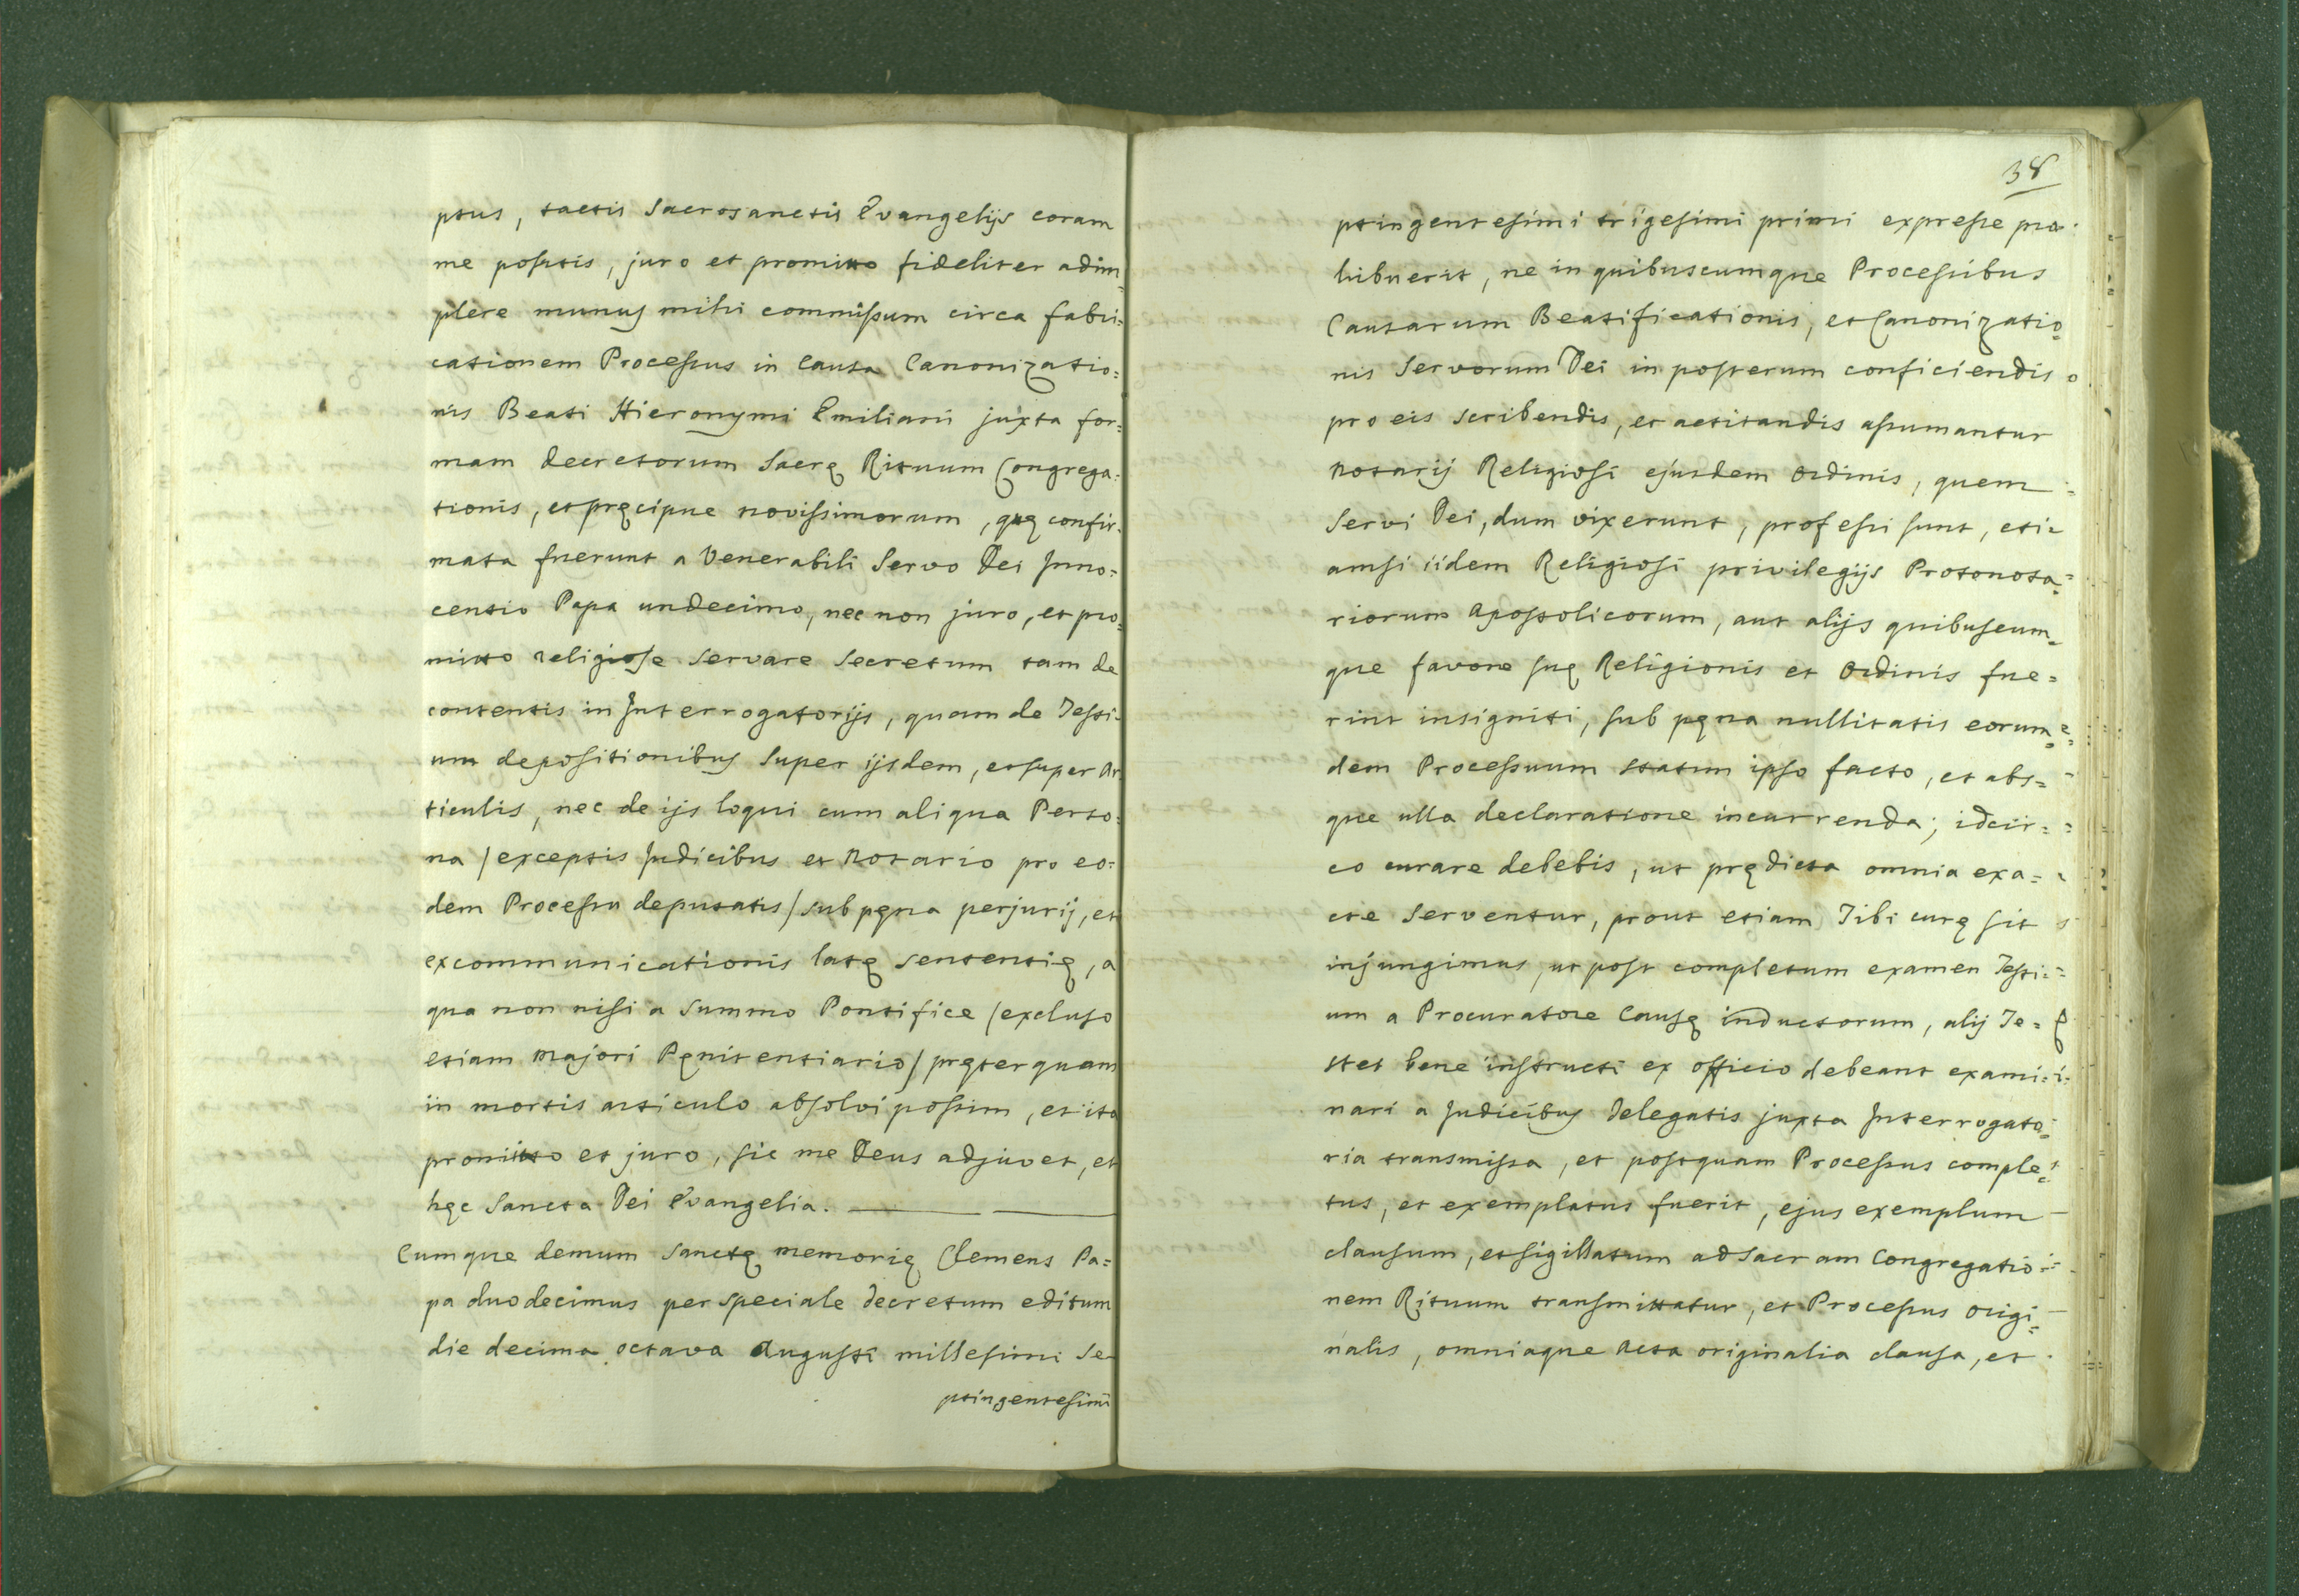 ptus, tactis Sacrosanctis Evangelijs coram
me positis, juro et promitto fideliter adim=
plere munus mihi commissum circa fabri=
cationem Processus in Causa Canonizatio=
nis Beati Hieronymi Emiliani juxta for=
mam decretorum Sacrę Rituum Congrega=
tionis, et pręcipue novissimorum, quę confir=
mata fuerunt a Venerabili Servo Dei Inno=
centio Papa undecimo, nec non juro, et pro=
mitto religiose servare secretum tam de
contentis in Interrogatorijs, quam de Testi=
um depositionibus super ijsdem, et super Ar
ticulis, nec de ijs loqui cum aliqua Perso=
na /exceptis Judicibus et Notario pro eo=
dem Processu deputatis/ sub pęna perjurij, et
excommunicationis latę sententię, a
qua non nisi a Summo Pontifice /excluso
etiam Majori Pęnitentiario/ pręterquam
in mortis articulo absolvi possim, et ita
promitto et juro, sic me Deus adjuvet, et
hęc Sancta Dei Evangelia.
Cumque demum Sanctę memorię Clemens Pa=
pa duodecimus per speciale decretum editum
die decima octava Augusti millesimi Se
ptingentesimi
38
ptingentesimi trigesimi primi expresse pro
hibuerit, ne in quibuscumque Processibus
Causarum Beatificationis, et Canonizatio=
nis Servorum Dei in posterum conficiendis
pro eis scribendis, et actitandis assumantur
Notarij Religiosi ejusdem Ordinis, quem
Servi Dei, dum vixerunt, professi sunt, eti=
amsi iidem Religiosi privilegijs Protonota=
riorum Apostolicorum, aut alijs quibuscum=
que favore suę Religionis et Ordinis fue=
rint insigniti, sub pęna nullitatis eorum=
dem Processuum statim ipso facto, et abs=
que ulla declaratione incurrenda; idcir=
co curare debebis, ut prędicta omnia exa=
cte serventur, prout etiam Tibi curę sit
injungimus, ut post completum examen Testi=
um a Procuratore Causę inductorum, alij Te=
stes bene instructi ex officio debeant exami=
nari a Judicibus Delegatis juxta Interrogato=
ria transmissa, et postquam Processus comple=
tus, et exemplatus fuerit, ejus exemplum
clausum, et sigillatum ad Sacram Congregatio=
nem Rituum transmittatur, et Processus origi=
nalis, omniaque Acta originalia clausa, et